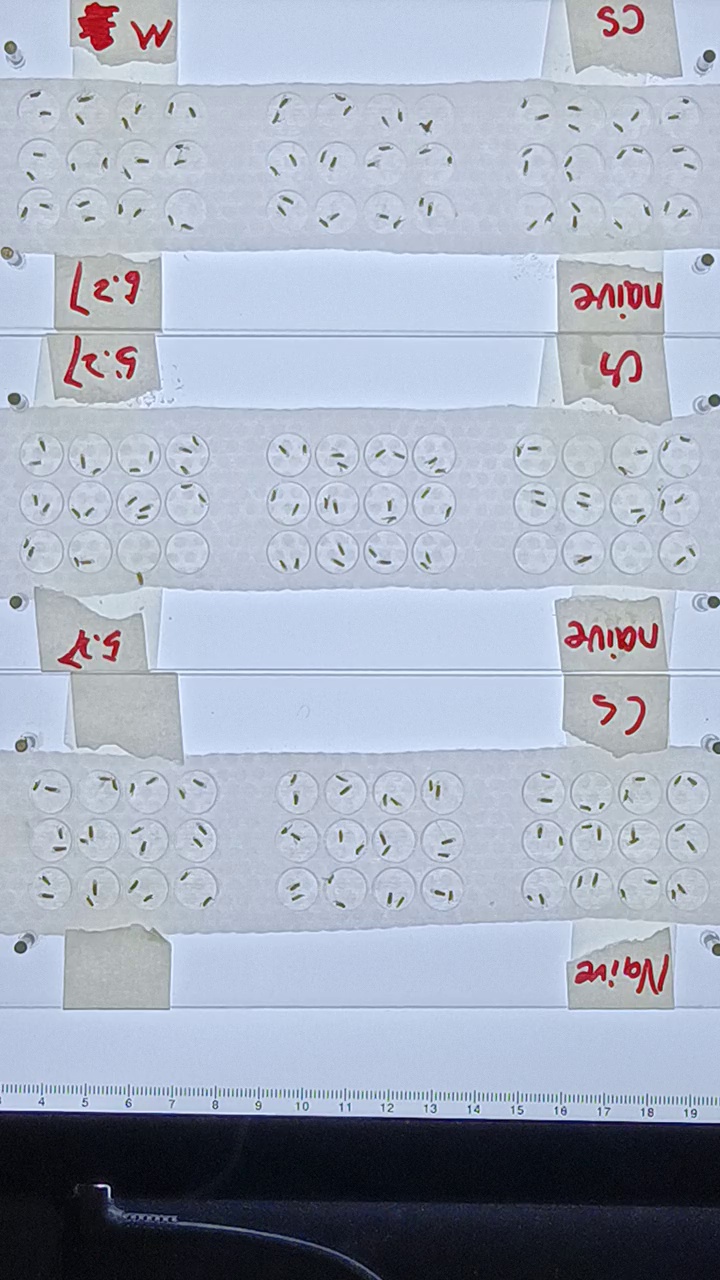 M CS
5.27 naive
5.27 CS
5.27 naive
CS
Naive
4 5 6 7 8 9 10 11 12 13 14 15 16 17 18 19